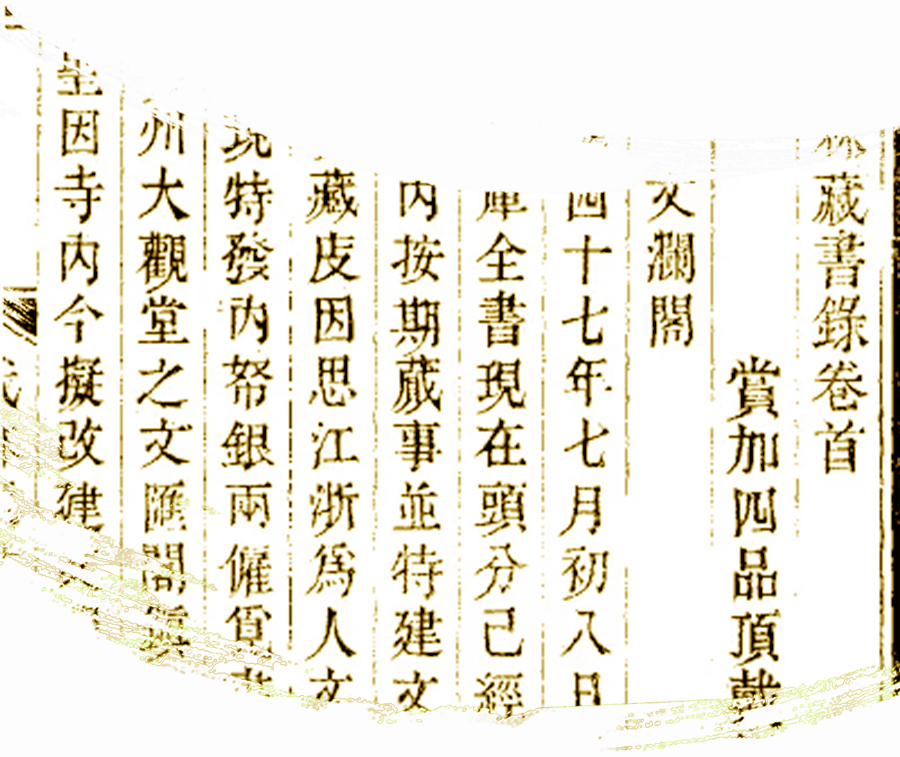 藏書錄卷首
賞加四品頂戴
文瀾閣
四十七年七月初八日
庫全書現在頭分已經
內按期蕆事並特建文
藏庋因思江浙為人文
現特發內帑銀兩僱覓
州大觀堂之文匯閣
聖因寺內今擬改建